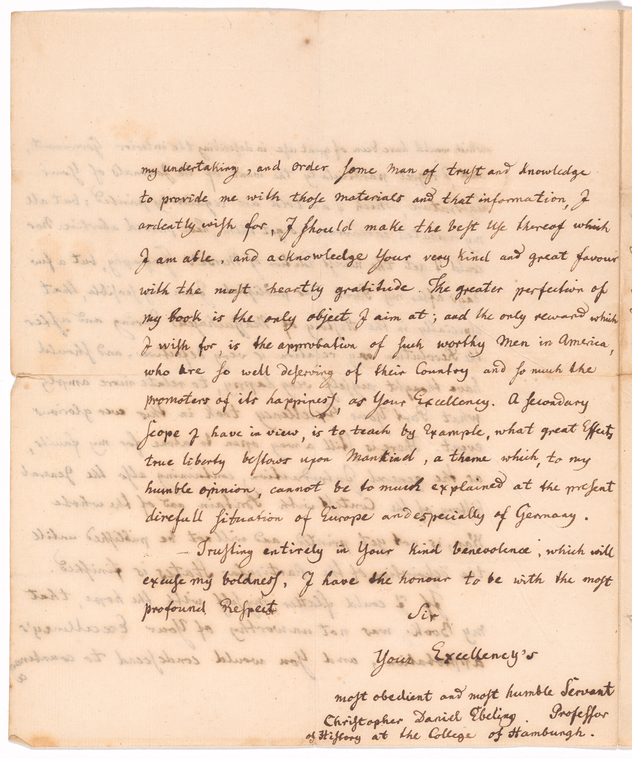 my undertaking, and order some man of trust and knowledge
to provide me with those materials and that information, I
ardently wish for, I should make the best Use thereof which
I am able, and acknowledge Your very kind and great favour
with the most heartly gratitude. The greater perfection of
my book is the only object I aim at; and the only reward which
I wish for, is the approbation of such worthy Men in America,
who are so well deserving of their Country and so much the
promoters of its happiness, as Your Excellency. A secondary
scope I have in view, is to teach by Example, what great Effects
true liberty bestows upon Mankind, a theme which, to my
humble opinion, cannot be to much explained at the present
direfull situation of Europe and especially of Germany.
— Trusting entirely in Your kind benevolence, which will
excuse my boldness, I have the honour to be with the most
profound Respect
Sir
Your Excellency's
most obedient and most humble Servant
Christopher Daniel Ebeling. Professor
of History at the College of Hamburgh.